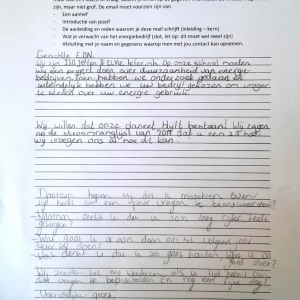 zijn, maar niet grof. De email moet voorzien zijn van
- Een aanhef
- Introductie van jezelf
- De aanleiding en reden waarom je deze mail schrijft (inleiding – kern)
- Wat je verwacht van het energiebedrijf (slot, let op: dit moet wel reëel zijn)
- Afsluiting met je naam en gegevens waarop men met jou contact kan opnemen.
Geachte E.ON,
Wij zijn & Eline Op onze school moeten
wij een project doen over duurzaamheid van energie-
bedrijven. Toen hebben we onderzoek gedaan en
uiteindelijk hebben we uw bedrijf gekozen om vragen
te stellen over uw energie gebruik.
Wij willen dat onze planeet blijft bestaan! Wij zagen
op de stroomranglijst van 2017 dat u een 2.5 had,
wij vroegen ons af hoe dit kan.
Daarom hopen wij dat u misschien even
tijd heeft om een paar vragen te beantwoorden?
- Waarom denkt u dat u zo'n laag cijfer heeft
gekregen?
- Wat gaat u er aan doen om het volgend jaar
beter te doen?
- Wat denkt u dat u zo gaat halen, was u al
Wij zouden het erg waarderen als u tijd heeft om
deze vragen te beantwoorden. En nog een fijne dag!
Vriendelijke groet,